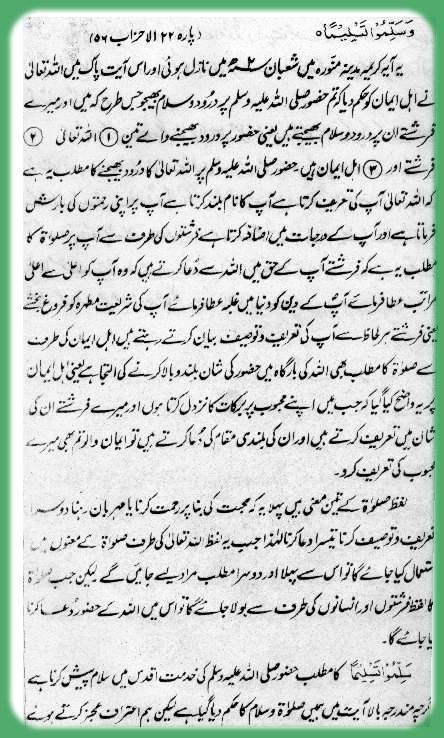 وَسَلِّمُوْا تَسْلِيْمًا ہ (پارہ ۲۲ الاحزاب ۵۶)
یہ آیہ کریمہ مدینہ منورہ میں شعبان ۲ھ میں نازل ہوئی اور اس آیت پاک میں اللہ تعالیٰ
نے اہل ایمان کو حکم دیا کہ تم حضور صلی اللہ علیہ وسلم پر درود و سلام بھیجو جس طرح کہ میں اور میرے
فرشتے ان پر درود و سلام بھیجتے ہیں یعنی حضور پر درود بھیجنے والے تین ① اللہ تعالیٰ ②
فرشتے اور ③ اہل ایمان ہیں حضور صلی اللہ علیہ وسلم پر اللہ تعالیٰ کا درود بھیجنے کا مطلب یہ ہے
کہ اللہ تعالیٰ آپ کی تعریف کرتا ہے آپ کا نام بلند کرتا ہے آپ پر اپنی رحمتوں کی بارش
فرماتا ہے اور آپ کے درجات میں اضافہ کرتا ہے فرشتوں کی طرف سے آپ پر صلوٰۃ کا
مطلب یہ ہے کہ فرشتے آپ کے حق میں اللہ سے دعا کرتے ہیں کہ وہ آپ کو اعلیٰ سے اعلیٰ
مراتب عطا فرمائے آپ کے دین کو دنیا میں غلبہ عطا فرمائے آپ کی شریعت مطہرہ کو فروغ بخشے
یعنی فرشتے ہر لحاظ سے آپ کی تعریف و توصیف بیان کرتے رہتے ہیں اہل ایمان کی طرف
سے صلوٰۃ کا مطلب بھی اللہ کی بارگاہ میں حضور کی شان بلند و بالا کرنے کی التجا ہے یعنی اہل ایمان
پر یہ واضح کیا گیا کہ جب میں اپنے محبوب پر برکات کا نزول کرتا ہوں اور میرے فرشتے ان کی
شان میں تعریف کرتے ہیں اور ان کی بلندی مقام کی دعا کرتے ہیں تو ایمان والو تم بھی میرے
محبوب کی تعریف کرو۔
لفظ صلوٰۃ کے تین معنی ہیں پہلا یہ کہ محبت کی بنا پر رحمت کرنا یا مہربان رہنا دوسرا
تعریف و توصیف کرنا تیسرا دعا کرنا لہٰذا جب یہ لفظ اللہ تعالیٰ کی طرف صلوٰۃ کے معنوں میں
استعمال کیا جائے گا تو اس سے پہلا اور دوسرا مطلب مراد لیے جائیں گے لیکن جب صلوٰۃ
کا لفظ فرشتوں اور انسانوں کی طرف سے بولا جائے گا تو اس میں اللہ کے حضور دعا کرنا
لیا جائے گا۔
سَلِّمُوْا تَسْلِيْمًا کا مطلب حضور صلی اللہ علیہ وسلم کی خدمت اقدس میں سلام پیش کرنا ہے
گرچہ مندرجہ بالا آیت میں ہمیں صلوٰۃ و سلام کا حکم دیا گیا ہے لیکن ہم اعتراف عجز کرتے ہوئے